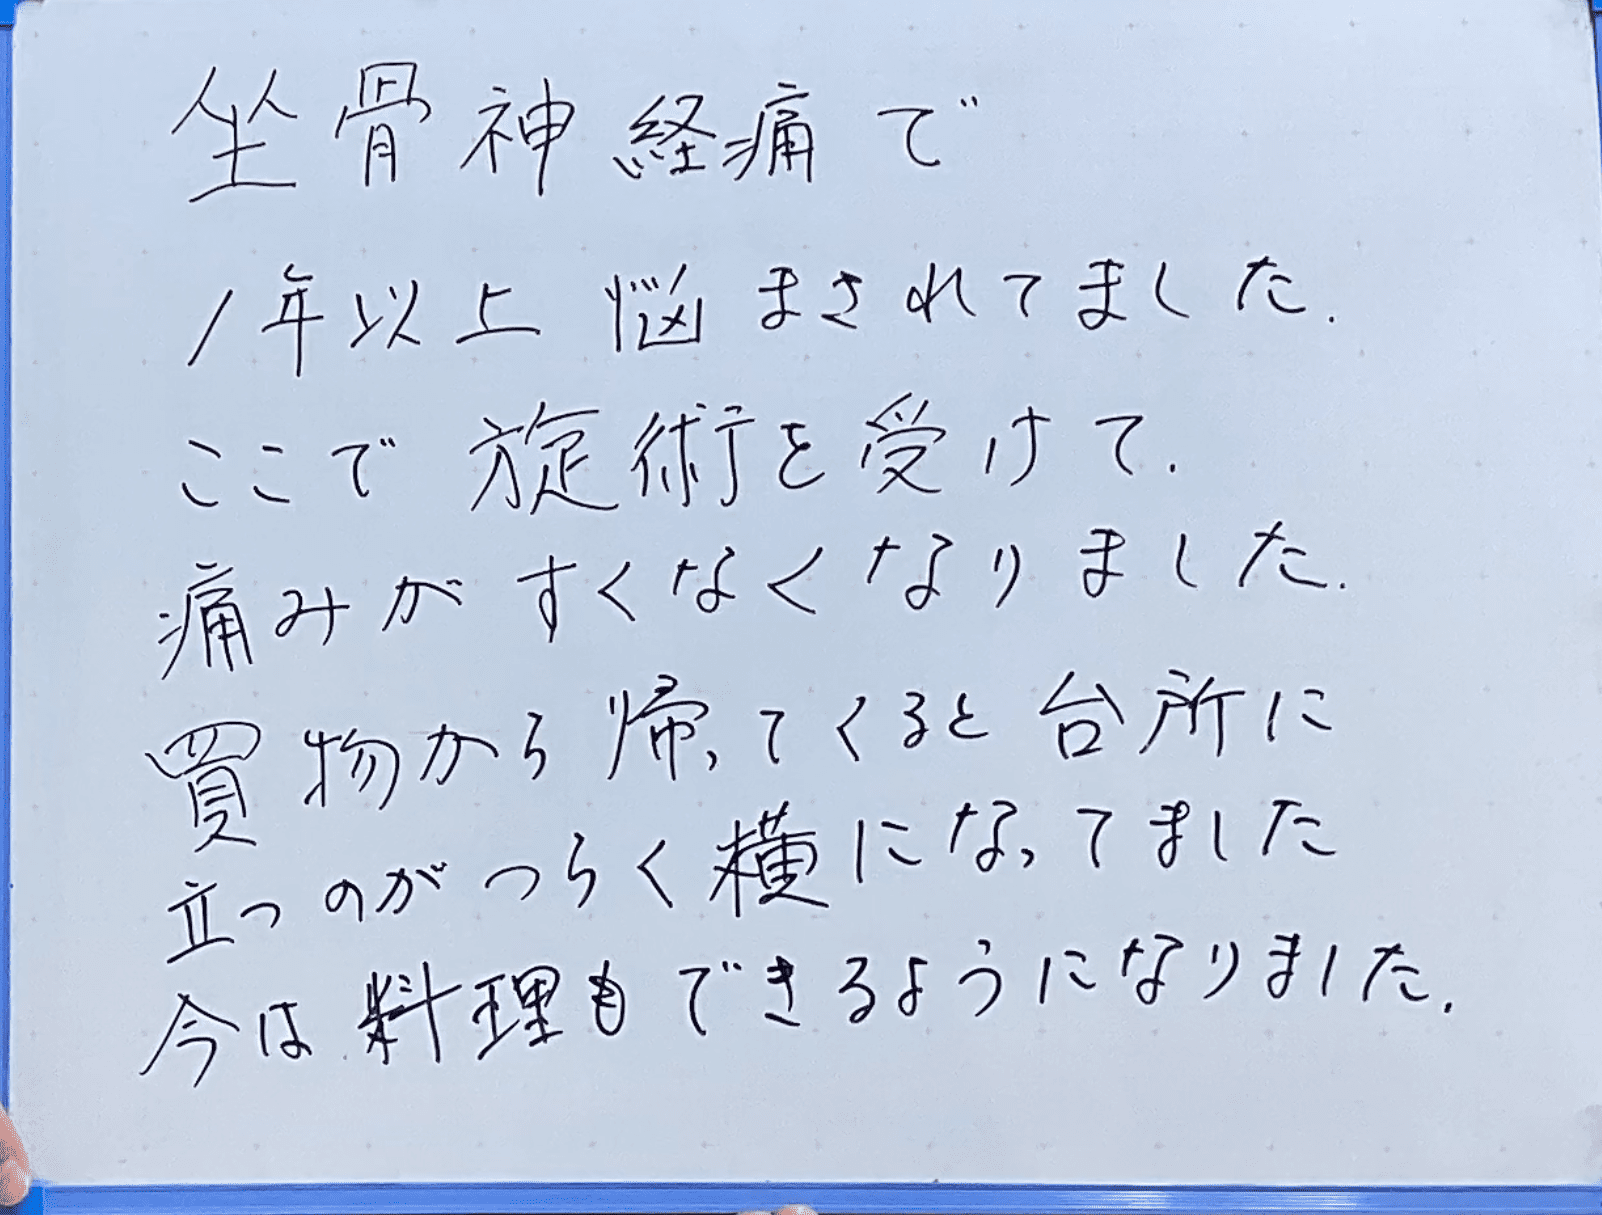 坐骨神経痛で
1年以上悩まされてました.
ここで旋術を受けて.
痛みがすくなくなりました.
買物から帰ってくると台所に
立つのがつらく横になってました
今は料理もできるようになりました.